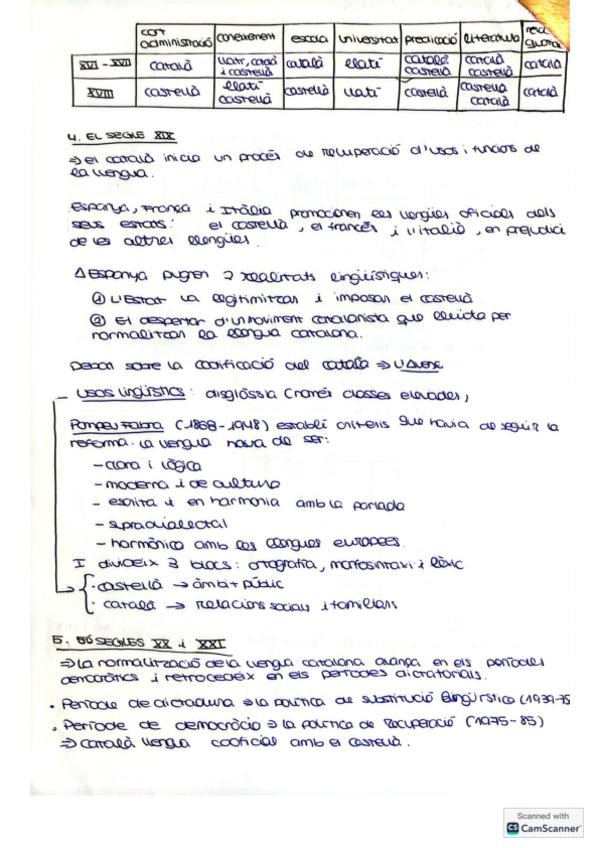 cort administració | coneixement | escola | universitat | predicació | literatura
XVI - XVII | català | llatí, català i castellà | català | llatí | català castellà | català castellà | català
XVIII | castellà | llatí castellà | castellà | llatí | castellà | castellà català | català
4. EL SEGLE XIX
⇒ el català inicia un procés de recuperació d'usos i funcions de
la llengua.
Espanya, França i Itàlia promocionen les llengües oficials dels
seus estats: el castellà, el francés i l'italià, en prejudici
de les altres llengües.
A Espanya pugnen 2 realitats lingüístiques:
① L'Estat la legitimitzan i imposan el castellà
② El despertar d'un moviment catalanista que lluita per
normalitzar la llengua catalana.
Debat sobre la codificació del català ⇒
Usos lingüístics: diglòssia (només classes elevades,
Pompeu Fabra (1868-1948) establí criteris que havia de seguir la
reforma. La llengua havia de ser:
- clara i lògica
- moderna i de cultura
- escrita i en harmonia amb la parlada
- supradialectal
- harmònica amb les llengües europees.
I divideix 3 blocs: ortografia, morfosintaxi i lèxic
· castellà → àmbit públic
· català → relacions socials i familiars
5. SEGLES XX i XXI
⇒ La normalització de la llengua catalana avança en els períodes
democràtics i retrocedeix en els períodes dictatorials.
· Període de dictadura ⇒ la política de substitució lingüística (1939-75
· Període de democràcia ⇒ la política de recuperació (1975-85)
⇒ català llengua cooficial amb el castellà.
Scanned with
CS CamScanner